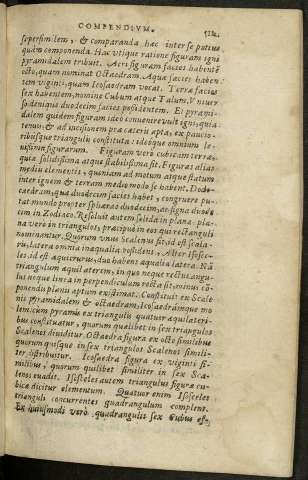 COMPENDIVM.
se persimilem, & comparanda hac inter se putius
quàm componenda. Hac vtique ratione figuram igni
pyramidalem tribuit. Aeri figuram facies habentē
octo, quam nominat Octaedram. Aqua facies haben
tem viginti, quam Icosaedram vocat. Terra facies
sex habentem, nomine Cubum atque Talum. Vniuer
so denique duodecim facies possidentem. Et pyrami-
dalem quidem figuram ideo conuenire vult igni, quia
tenuis, & ad incisionem præ cæteris apta, ex paucio-
ribusque triangulis constituta: ideoque omnium le-
uissima figurarum. Figuram verò cubicam terræ,
quia solidissima atque stabilissima sit. Figuras alias
mediis elementis, quoniam ad motum atque statum
inter ignem & terram medio modo se habent. Dode
caedram, quæ duodecim facies habet, congruere pu-
tat mundo propter sphæras duodecim, ac signa duode
cim in Zodiaco. Resoluit autem solida in plana: pla-
na verò in triangulos, præcipuè in eos qui rectanguli
nominantur. Quorum vnus Scalenus sit, id est scala-
ris, latera omnia inæqualia possidens. Alter Isosce-
les id est æquicrurius, duo habens æqualia latera. Nā
triangulum æquilaterem, in quo neque rectus angu-
lus neque linea in perpendiculum recta sit, minus cō-
ponendis planis aptum existimat. Constituit ex Scale
nis pyramidem & octaedram, Icosaedramque mo
lem. cùm pyramis ex triangulis quatuor æquilateri-
bus constituatur, quorum quælibet in sex triangulos
Scalenos diuiditur. Octaedra figura ex octo similibus
quorum quisque in sex triangulos Scalenos simili-
ter distribuitur. Icosaedra figura ex viginti si-
milibus, quorum quilibet similiter in sex Sca-
lenos euadit. Isosceles autem triangulus figuræ cu-
bicæ dicitur elementum. Quatuor enim Isosceles
trianguli concurrentes quadrangulum complent.
Ex huiusmodi verò quadrangulis sex Cubus ef-